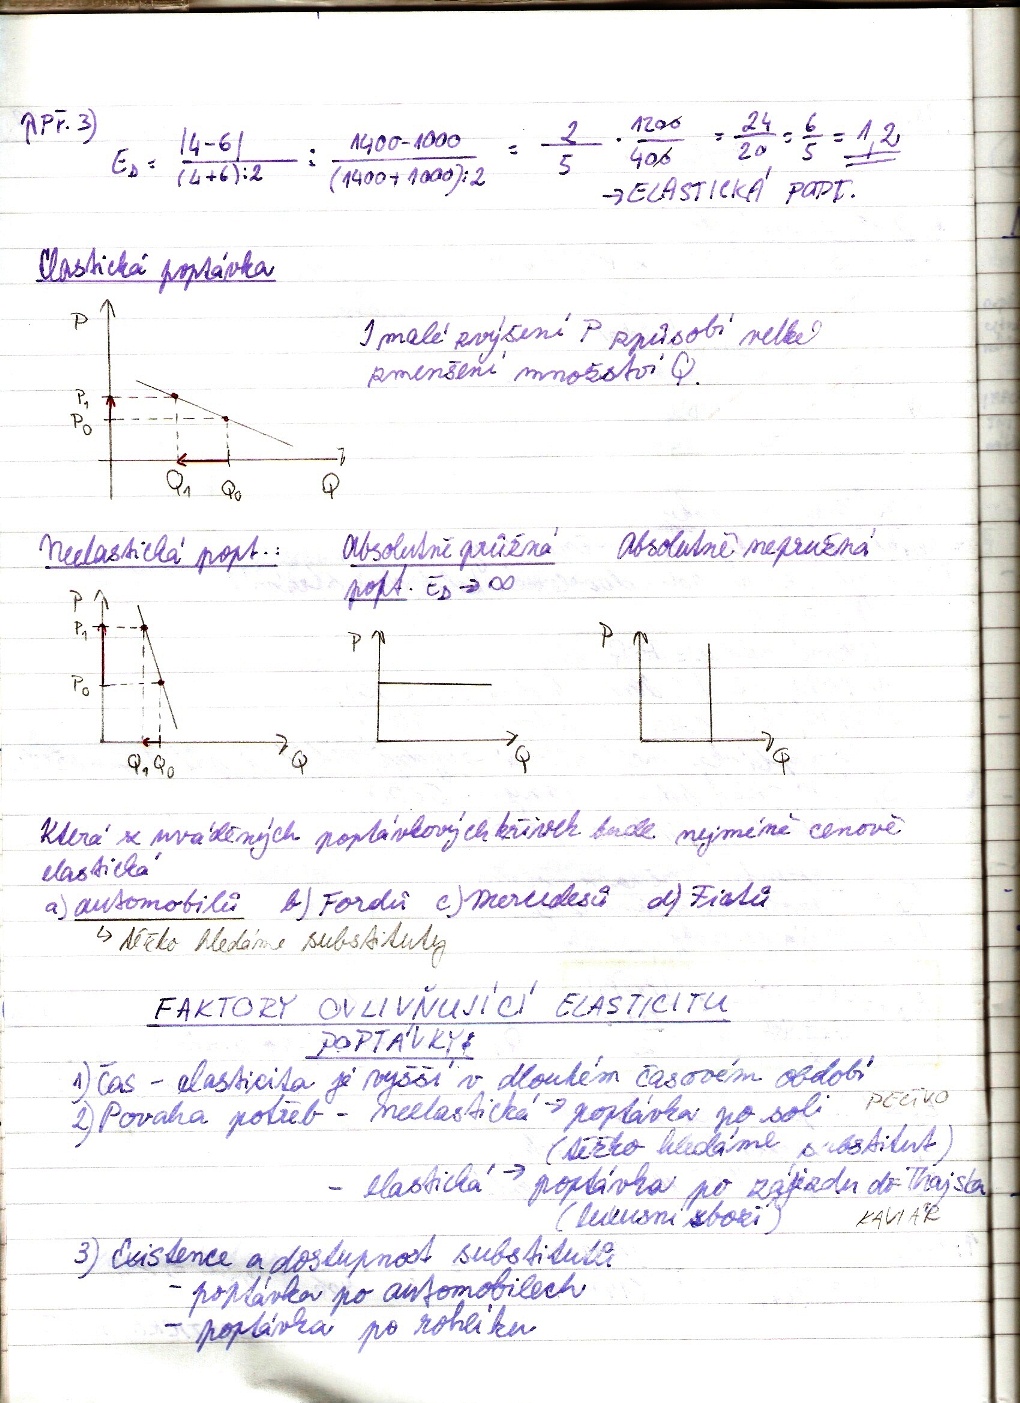 Př. 3)
E_D = |4-6| / (4+6):2 : 1400-1000 / (1400+1000):2 = 2/5 · 1200/400 = 24/20 = 6/5 = 1,2
→ ELASTICKÁ POPT.
Elastická poptávka
I malé zvýšení P způsobí velké
zmenšení množství Q.
P
P₁
P₀
Q₁ Q₀ Q
Neelastická popt.:
Absolutně pružná
popt. E_D → ∞
Absolutně nepružná
P
P₁
P₀
Q₁ Q₀ Q
P
Q
P
Q
Která z uváděných poptávkových křivek bude nejméně cenově
elastická
a) automobilů b) Fordů c) Mercedesů d) Fiatů
↳ těžko hledáme substituty
FAKTORY OVLIVŇUJÍCÍ ELASTICITU
POPTÁVKY:
1) Čas - elasticita je vyšší v dlouhém časovém období
2) Povaha potřeb - neelastická → poptávka po soli PEČIVO
(těžko hledáme substitut)
- elastická → poptávka po zájezdu do Thajska
(luxusní zboží) KAVIÁR
3) Existence a dostupnost substitutů
- poptávka po automobilech
- poptávka po rohlíku